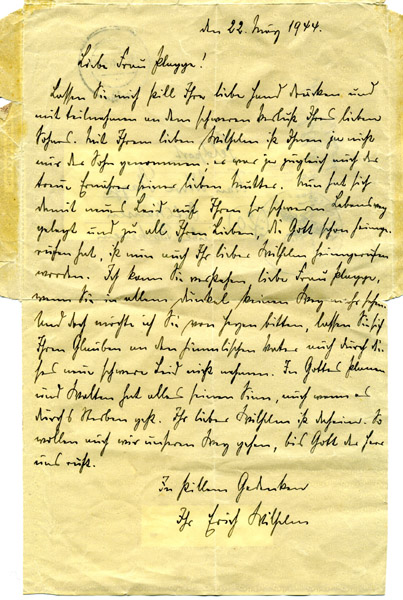 den 22. März 1944.
Liebe Frau Plagge!
Lassen Sie mich still Ihre liebe Hand drücken und
mit teilnehmen an dem schweren Verlust Ihres lieben
Sohnes. Mit Ihrem lieben Wilhelm ist Ihnen ja nicht
nur der Sohn genommen, er war ja zugleich auch der
treue Ernährer seiner lieben Mutter. Nun hat sich
damit neues Leid auf Ihren so schweren Lebensweg
gelegt und zu all Ihren Lieben, die Gott schon heimge-
rufen hat, ist nun auch Ihr lieber Wilhelm heimgerufen
worden. Ich kann Sie verstehen, liebe Frau Plagge,
wenn Sie in allem Dunkel keinen Weg mehr sehen.
Und doch möchte ich Sie von Herzen bitten, lassen Sie sich
Ihren Glauben an den himmlischen Vater auch durch die-
ses neue schwere Leid nicht nehmen. In Gottes Planen
und Walten hat alles seinen Sinn, auch wenn es
durchs Sterben geht. Ihr lieber Wilhelm ist daheim. So
wollen auch wir unseren Weg gehen, bis Gott der Herr
uns ruft.
In stillem Gedenken
Ihr Erich Wilhelm